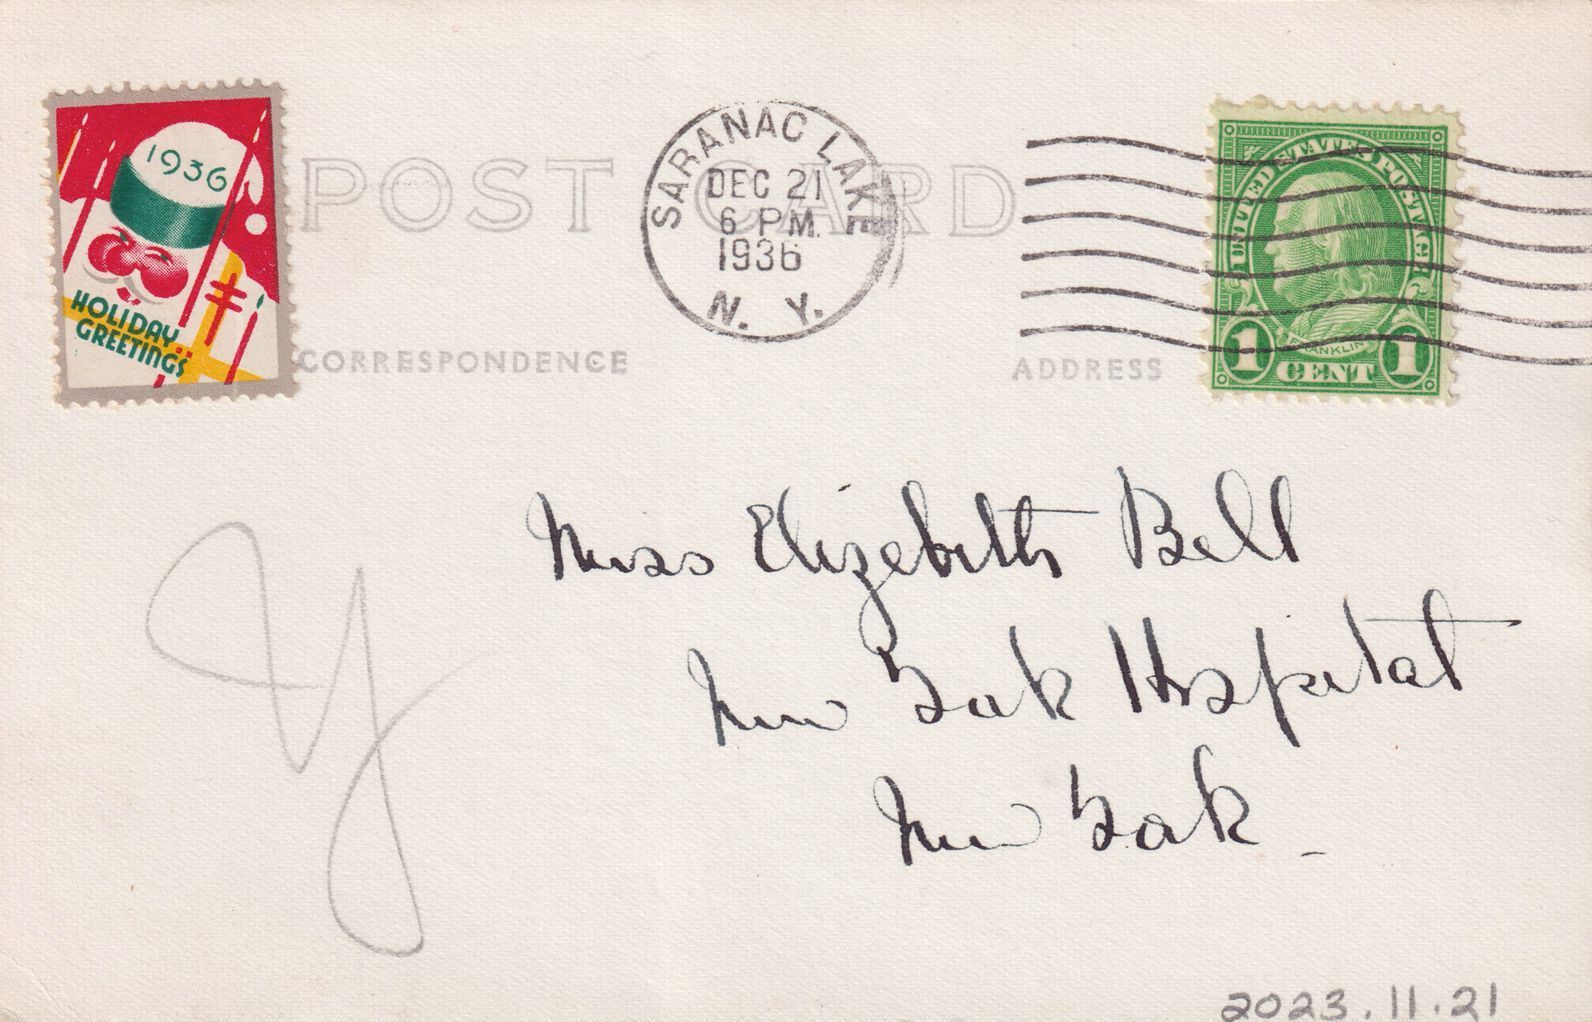 1936
HOLIDAY
GREETINGS
POST CARD
CORRESPONDENCE
ADDRESS
SARANAC LAKE
DEC 21
6 PM.
1936
N. Y.
UNITED STATES POSTAGE
FRANKLIN
1 CENT 1
Miss Elizabeth Bell
New York Hospital
New York
2023.11.21